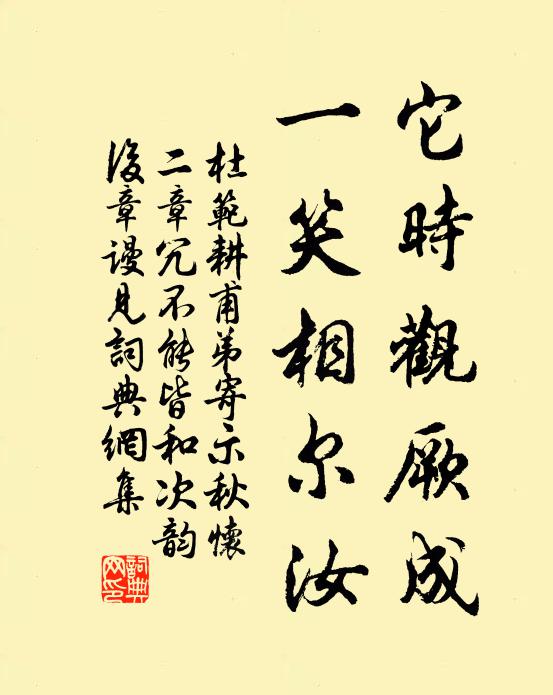 它時觀厥成
一笑相尔汝
杜範耕甫弟寄示秋懷
二章冗不能皆和次韵
後章谩見詞典網集
詞典
网印